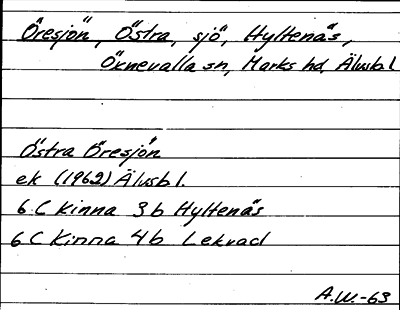 Öresjön, Östra, sjö, Hyltenäs,
Öxnevalla sn, Marks hd, Älvsb. l
Östra Öresjön
ek (1962) Älvsb l.
6 C Kinna 3b Hyltenäs
6 C Kinna 4b Lekvad
A.W.-63